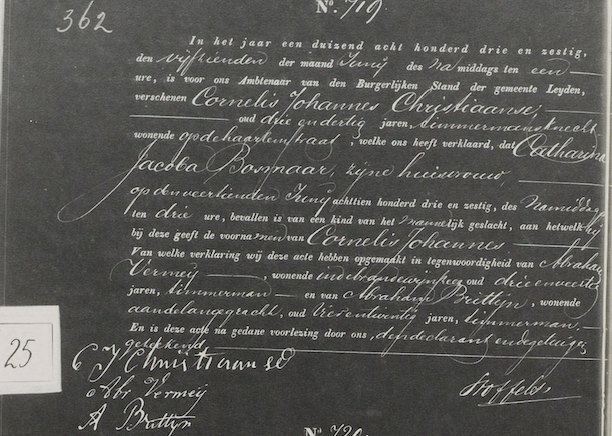 N°. 719.
362
In het jaar een duizend acht honderd drie en zestig,
den vijftienden der maand Junij des namiddags ten een
ure, is voor ons Ambtenaar van den Burgerlijken Stand der gemeente Leyden,
verschenen Cornelis Johannes Christiaanse,
oud drie en dertig jaren, timmermansknecht,
wonende op de haarlemstraat, welke ons heeft verklaard, dat Catharina
Jacoba Bosmaar, zijne huisvrouw,
op den veertienden Junij achttien honderd drie en zestig, des namiddags
ten drie ure, bevallen is van een kind van het mannelijk geslacht, aan hetwelk hij
bij deze geeft de voornamen van Cornelis Johannes
Van welke verklaring wij deze acte hebben opgemaakt in tegenwoordigheid van Abraham
Vermeij, wonende in de oud
jaren, timmerman en van Abraham Brittijn, wonende
aan de langegracht, oud jaren, timmerman.
En is deze acte na gedane voorlezing door ons, den declarant en de getuigen
geteekend.
C J Christiaanse
Abr Vermeij
A Brittijn
Stoffels
25
N°. 720.